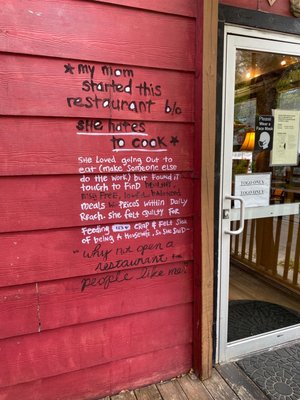 * my mom
started this
restaurant b/c
she hates
to cook *
She loved going out to
eat (make someone else
do the work) but found it
tough to find
meals w prices within daily
Reach. She felt guilty for
Feeding CRAP & Felt Sick
of being a Housewife. So SHE SAID-
"why not open a
restaurant for
people like me!"
Please
Wear a
Face Mask
TO-GO ONLY
TO-GO ONLY